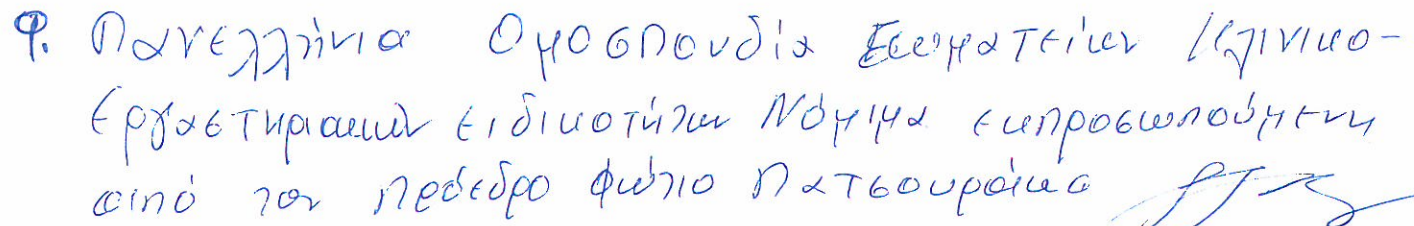 9. Πανελλήνια Ομοσπονδία Σωματείων Κλινικο-
εργαστηριακών ειδικοτήτων Νόμιμα εκπροσωπούμενη
από τον πρόεδρο Φώτιο Πατσουράκο